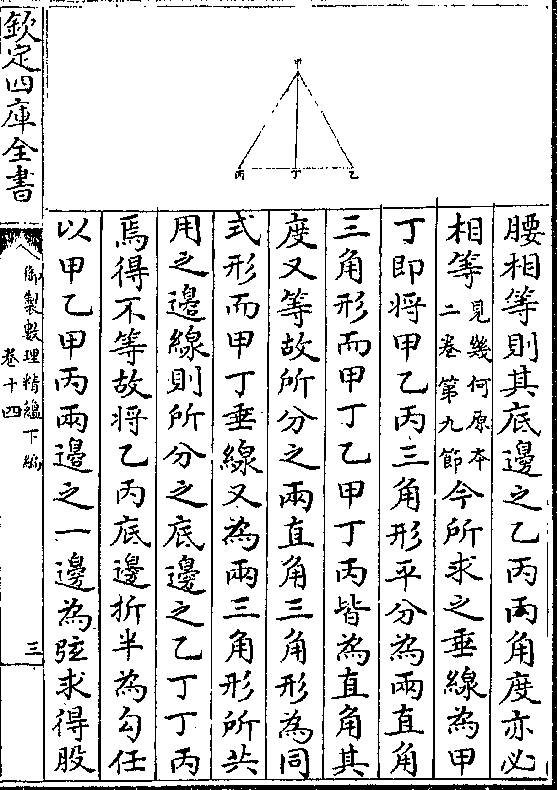 甲
丙
丁
乙
腰相等則其底邊之乙丙兩角度亦必
相等見幾何原本二卷第九節今所求之垂線為甲
丁即將甲乙丙三角形平分為兩直角
三角形而甲丁乙甲丁丙皆為直角其
度又等故所分之兩直角三角形為同
式形而甲丁垂線又為兩三角形所共
用之邊線則所分之底邊之乙丁丁丙
焉得不等故將乙丙底邊折半為勾任
以甲乙甲丙兩邊之一邊為弦求得股
欽定四庫全書
御製數理精蘊下編
卷十四
三